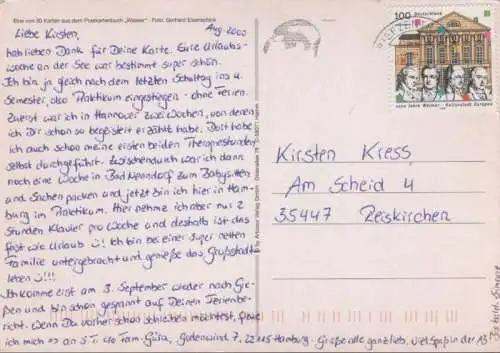 Eine von 30 Karten aus dem Postkartenbuch „Wasser" · Foto: Gerhard Eisenschink
Aug. 2000
Liebe Kirsten,
hab lieben Dank für Deine Karte. Eure Urlaubs-
woche an der See war bestimmt super schön.
Ich bin ja gleich nach dem letzten Schultag ins 4.
Semester, also Praktikum eingestiegen - ohne Ferien.
Zuerst war ich in Hannover zwei Wochen, von denen
ich Dir schon so begeistert erzählt habe. Dort habe
ich auch schon meine ersten beiden Therapiestunden
selbst durchgeführt. Zwischendurch war ich dann
noch eine Woche in Bad Nenndorf zum Babysitten
und Sachen packen und jetzt bin ich hier in Ham-
burg im Praktikum. Hier nehme ich aber nur 2
Stunden Klavier pro Woche und deshalb ist das
fast wie Urlaub !! Ich bin bei einer super netten
Familie untergebracht und genieß das Großstadt-
leben !!!
Ich komme erst am 3. September wieder nach Gie-
ßen und bin schon gespannt auf Deinen Ferienbe-
richt. Wenn Du vorher schon schreiben möchtest,
ich mich es an S.T. c/o Fam. 7, 22115 Hamburg - Grüße alle ganz lieb, viel Spaß in der
by Artcolor Verlag GmbH
100 Deutschland
1000 Jahre Weimar - Kulturstadt Europas
Kirsten Kress
Am Scheid 4
35447 Reiskirchen